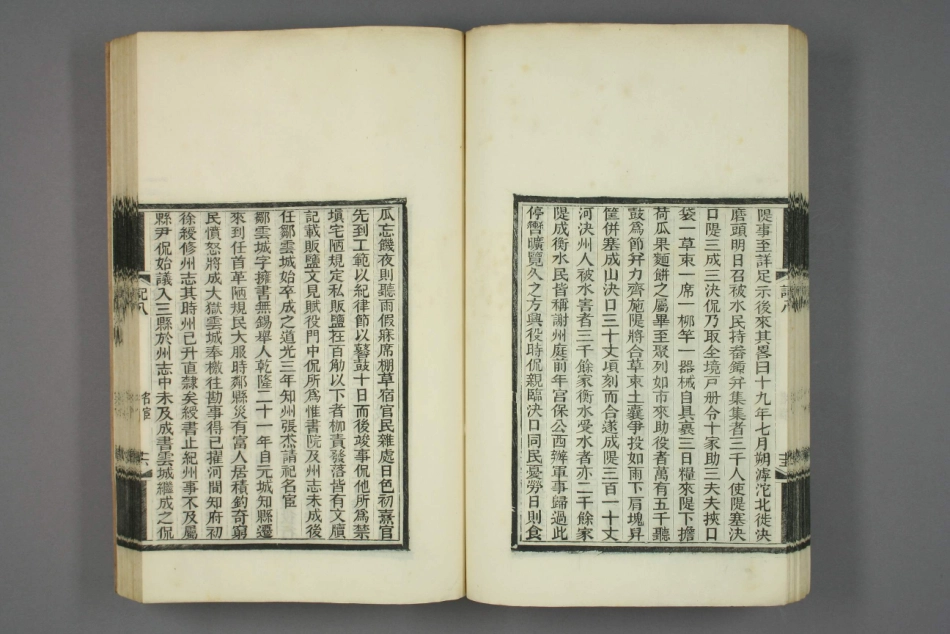 隄事至詳足示後來其畧曰十九年七月朔滹沱北徙決
磨頭明日召被水民持畚鍤幷集集者三千人使隄塞決
口隄三成三決侃乃取全境戸册令十家助三夫夫挾口
袋一草束一席一柳竿一器械自具裹三日糧來隄下擔
荷瓜果麵餅之屬畢至聚列如市來助役者萬有五千聽
鼓爲節幷力齊施隄將合草束土囊爭投如雨下肩塊舁
筐併塞成山決口三十丈頃刻而合遂成隄三百一十丈
河決州人被水害者三千餘家衡水受水者亦二千餘家
隄成衡水民皆稱謝州庭前年宮保公西辦軍事歸過此
停轡曠覽久之方興役時侃親臨決口同民憂勞日則食
瓜忘饑夜則聽雨假寐席棚草宿官民雜處日色初嘉官
先到工範以紀律節以鼛鼓十日而後竣事侃他所爲禁
塡宅陋規定私販鹽在百觔以下者枷責發落皆有文牘
記載販鹽文見賦役門中侃所爲惟書院及州志未成後
任鄒雲城始卒成之道光三年知州張杰請祀名宦
鄒雲城字擁書無錫舉人乾隆二十一年自元城知縣遷
來到任首革陋規民大服時鄰縣災有富人居積釣奇窮
民憤怒將成大獄雲城奉檄往勘事得已擢河間知府初
徐綬修州志其時州已升直隷矣綬書止紀州事不及屬
縣尹侃始議入三縣於州志中未及成書雲城繼成之侃
記八
名宦